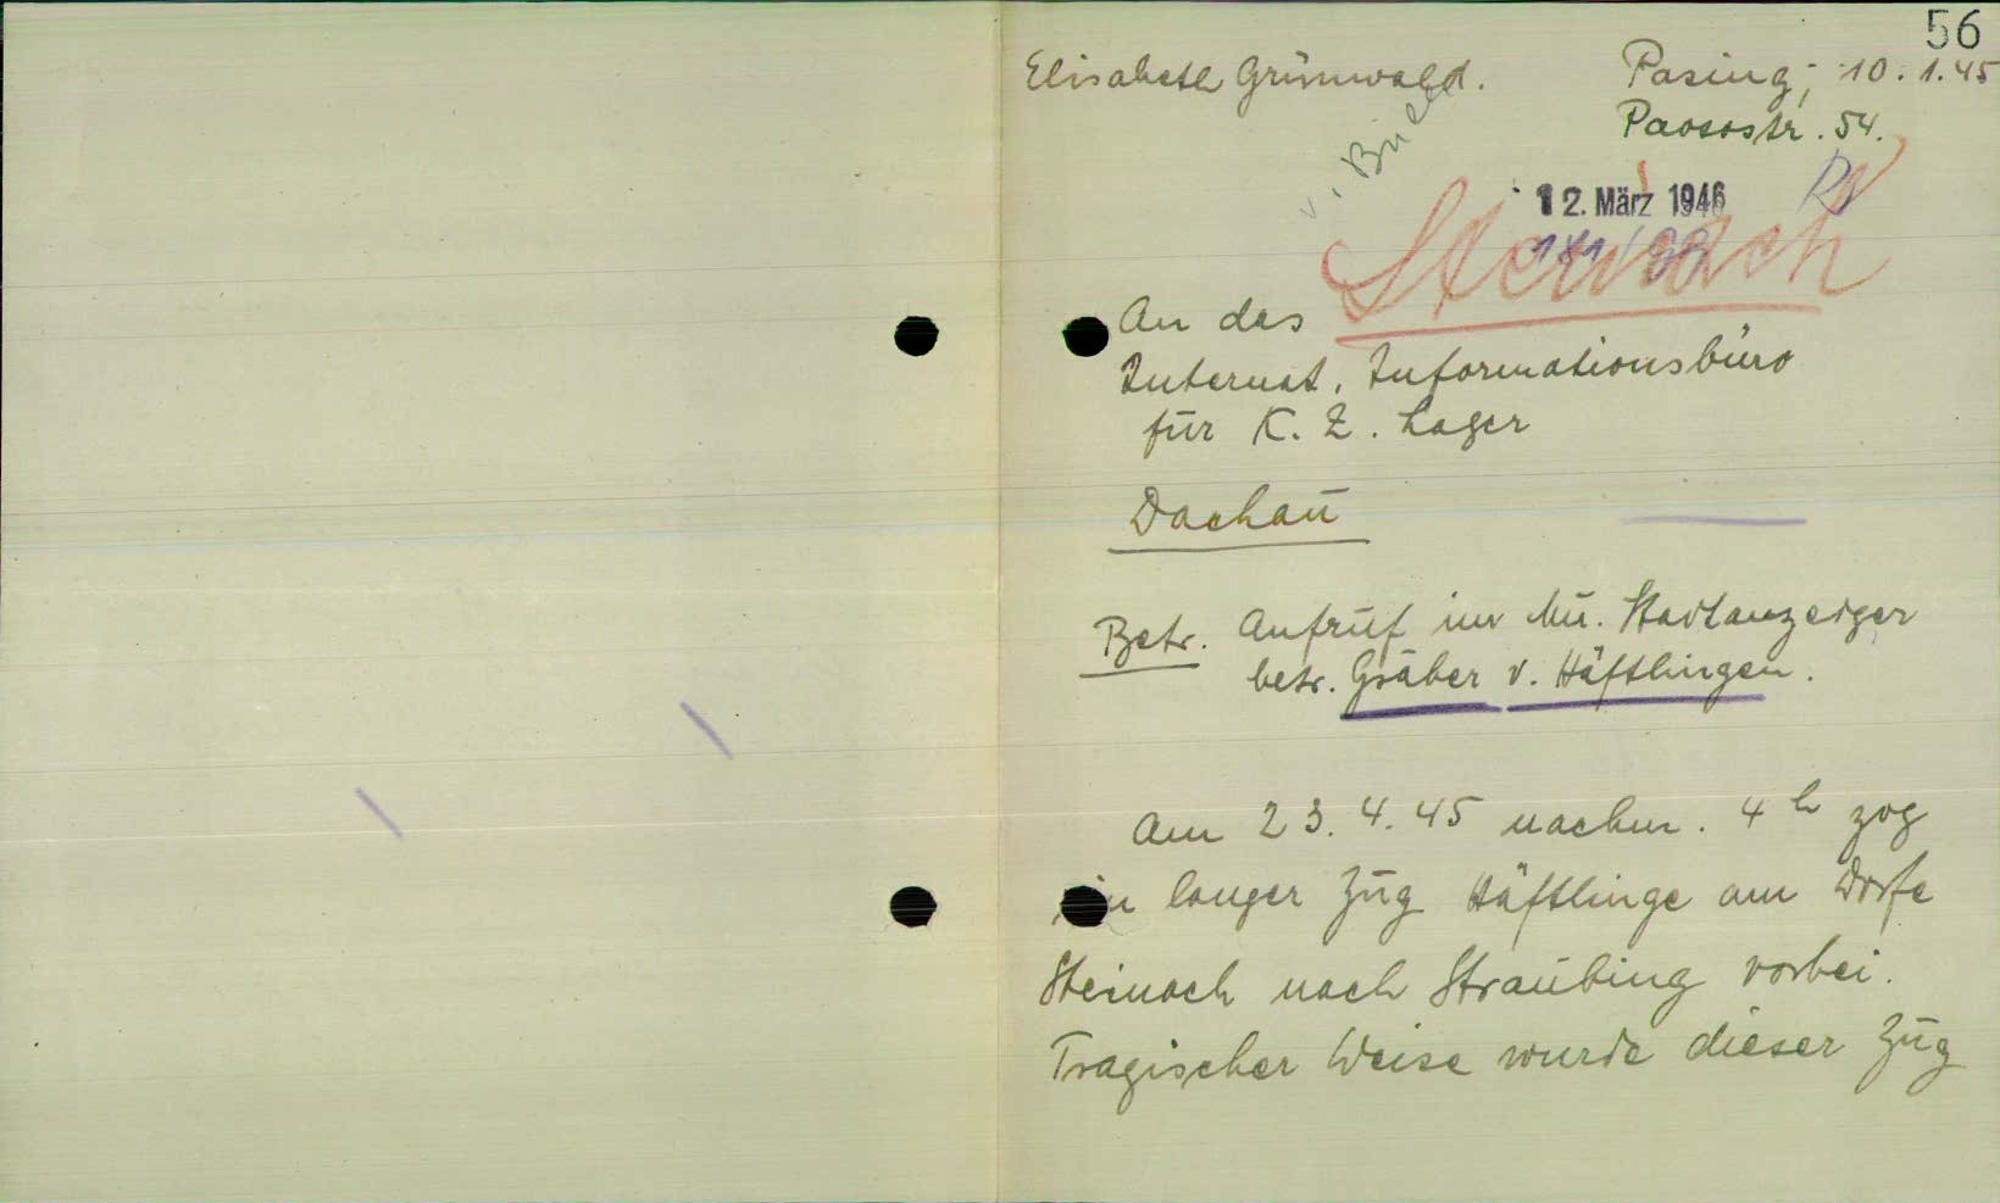 56
Elisabeth Grünwald. Pasing, 10. 1. 45
Paosostr. 54.
v. Brie
12. März 1946
Steinach
An das
Internat. Informationsbüro
für K. Z. Lager
Dachau
Betr. Aufruf im Mü. Stadtanzeiger
betr. Gräber v. Häftlingen.
Am 23. 4. 45 nachm. 4 h zog
ein langer Zug Häftlinge am Dorfe
Steinach nach Straubing vorbei.
Tragischer Weise wurde dieser Zug